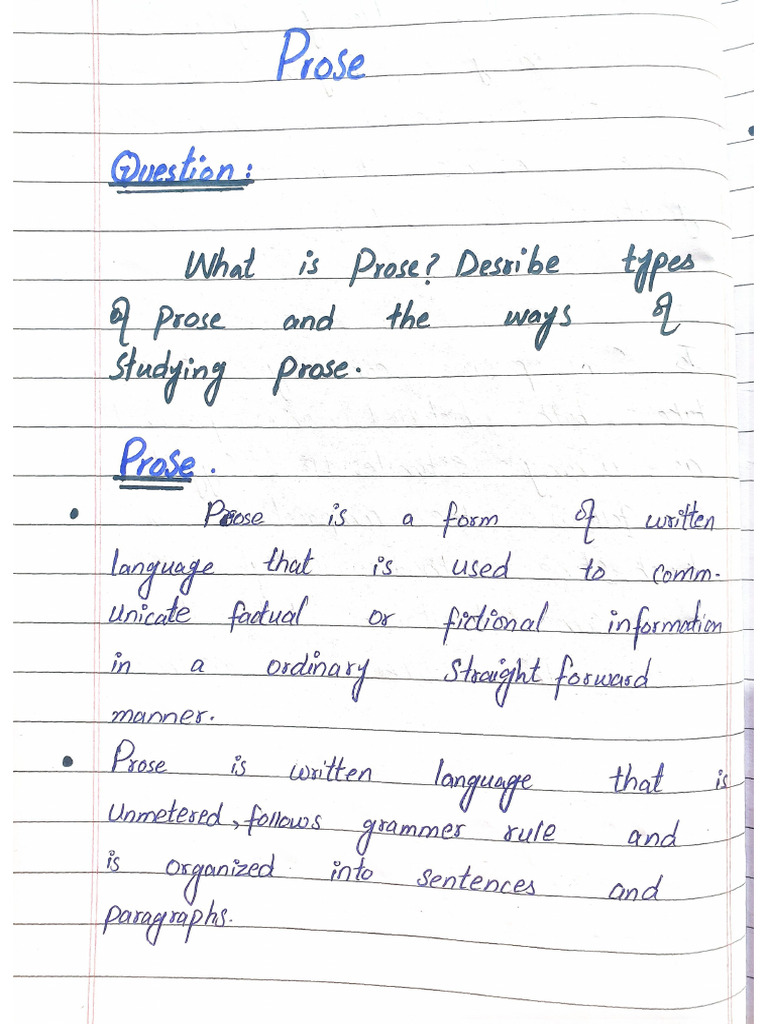 Prose
Question:
What is Prose? Desribe types
of prose and the ways of
studying prose.
Prose.
• Prose is a form of written
language that is used to comm-
unicate factual or fictional information
in a ordinary straight forward
manner.
• Prose is written language that is
Unmetered, follows grammer rule and
is organized into sentences and
paragraphs.